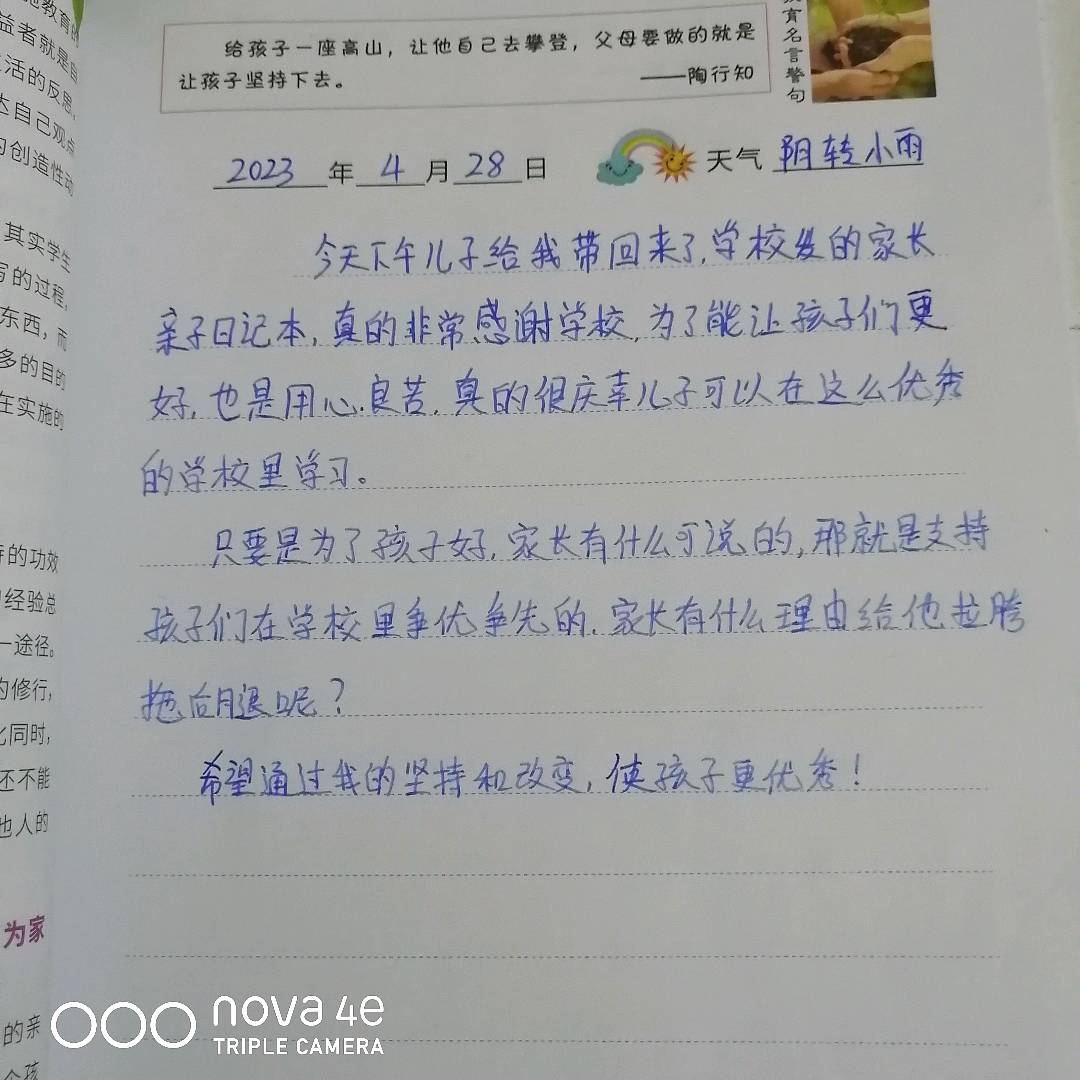 施教育的
益者就是自
活的反思,
达自己观点
的创造性动
其实学生
写的过程,
东西，而
多的目的
在实施的
的功效
经验总
一途径。
的修行,
同时,
还不能
他人的
为家
的亲
个孩
给孩子一座高山，让他自己去攀登，父母要做的就是
让孩子坚持下去。 ——陶行知
育名言警句
2023年4月28日 天气 阴转小雨
今天下午儿子给我带回来了,学校发的家长
亲子日记本,真的非常感谢学校,为了能让孩子们更
好,也是用心良苦,真的很庆幸儿子可以在这么优秀
的学校里学习。
只要是为了孩子好,家长有什么可说的,那就是支持
孩子们在学校里争优争先的,家长有什么理由给他拉胯
拖后腿呢?
希望通过我的坚持和改变,使孩子更优秀!
nova 4e
TRIPLE CAMERA